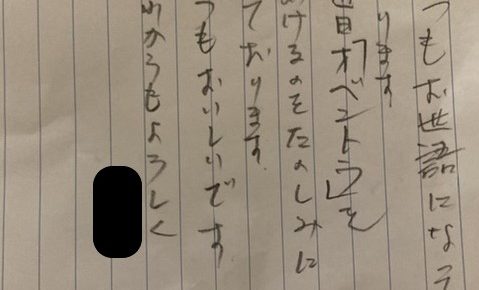 つもお世語になっ
ります
日「オベントウ」を
けるのをたのしみに
ております
つもおいしいです
からもよろしく